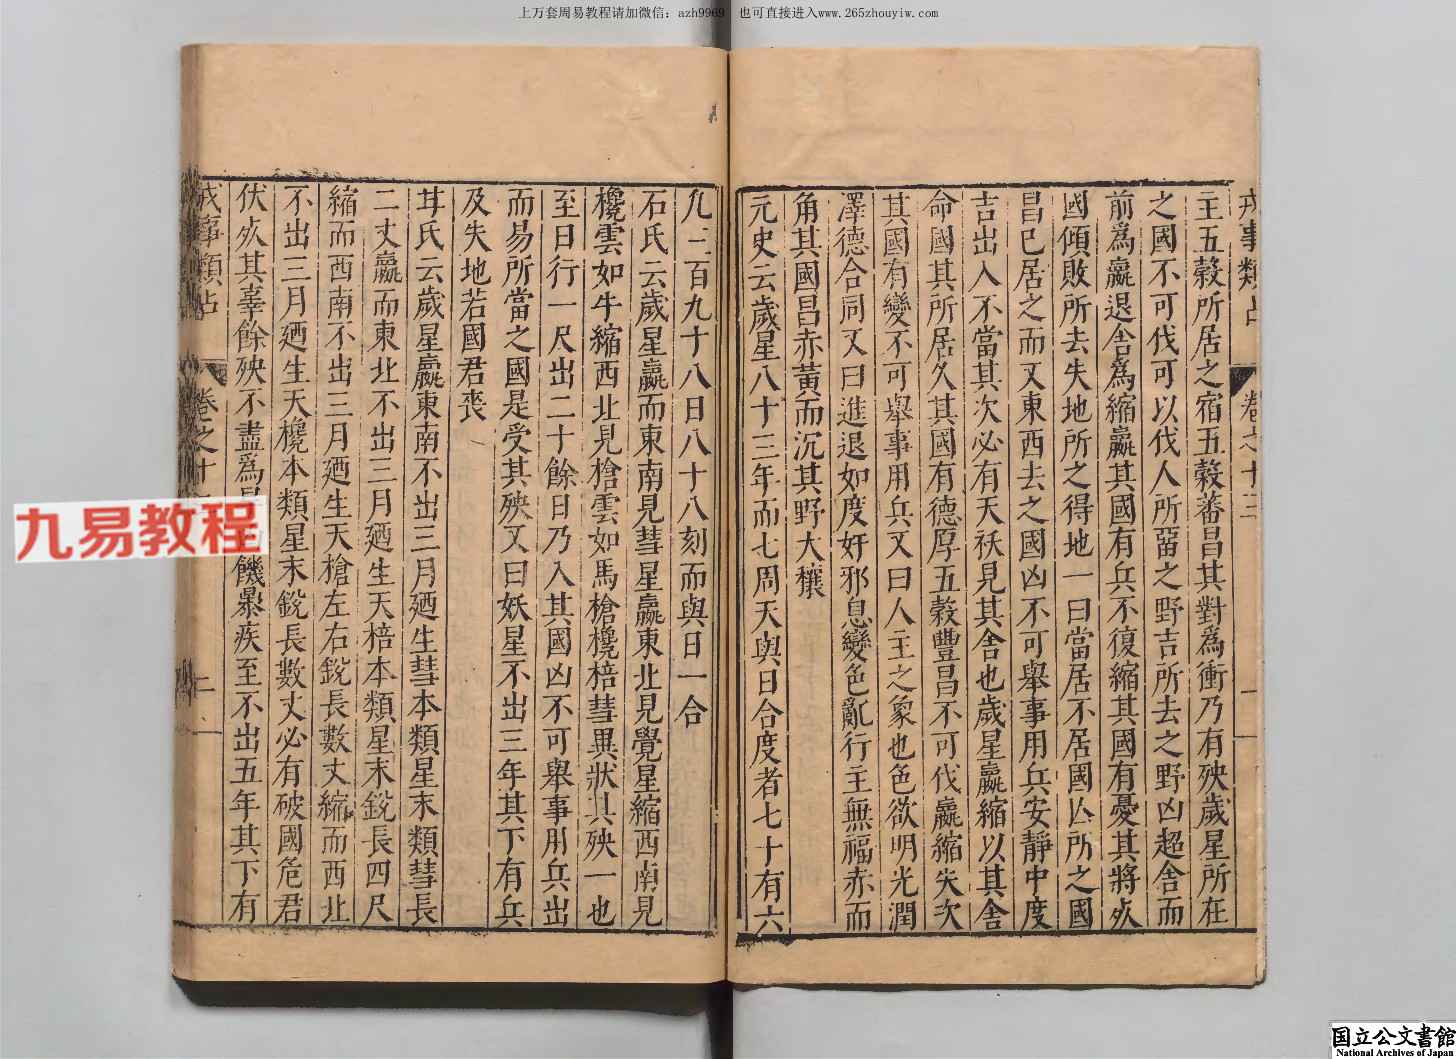 上万套周易教程请加微信：azh9969 也可直接进入www.265zhouyiw.com
戎事類占 卷之十三 一
主五穀所居之宿五穀蕃昌其對為衝乃有殃歲星所在
之國不可伐可以伐人所畱之野吉所去之野凶超舍而
前為嬴退舍為縮嬴其國有兵不復縮其國有憂其將死
國傾敗所去失地所之得地一曰當居不居國凶所之國
昌巳居之而又東西去之國凶不可舉事用兵安靜中度
吉出入不當其次必有天祅見其舍也歲星嬴縮以其舍
命國其所居久其國有德厚五穀豐昌不可伐嬴縮失次
其國有變不可舉事用兵又曰人主之象也色欲明光潤
澤德合同又曰進退如度奸邪息變色亂行主無福赤而
角其國昌赤黃而沉其野大穰
元史云歲星八十三年而七周天與日合度者七十有六
凡三百九十八日八十八刻而與日一合
石氏云歲星嬴而東南見彗星嬴東北見覺星縮西南見
欃雲如牛縮西北見槍雲如馬槍欃棓彗異狀其殃一也
至日行一尺出二十餘日乃入其國凶不可舉事用兵出
而易所當之國是受其殃又曰妖星不出三年其下有兵
及失地若國君喪
甘氏云歲星嬴東南不出三月廼生彗本類星末類彗長
二丈嬴而東北不出三月廼生天棓本類星末銳長四尺
縮而西南不出三月廼生天槍左右銳長數丈縮而西北
不出三月廼生天欃本類星末銳長數丈必有破國危君
伏死其辜餘殃不盡為饑暴疾至不出五年其下有
戎事類占 卷之十 二
九易教程
国立公文書館
National Archives of Japan